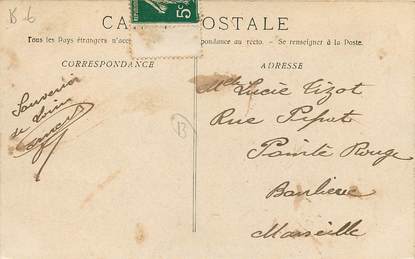 B-6
CA POSTALE
5c
Tous les Pays étrangers n'acc pondance au recto. - Se renseigner à la Poste.
CORRESPONDANCE
ADRESSE
Souvenir
de Loin
Mlle Lucie Tizot
Rue
Pointe Rouge
Banlieue
Marseille
B